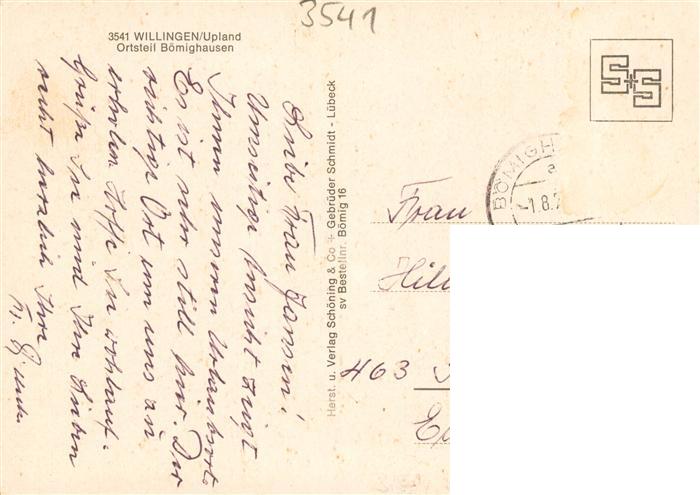 3541
3541 WILLINGEN/Upland
Ortsteil Bömighausen
Liebe Frau Jansen!
Umseitige Ansicht zeigt
Ihnen unseren Urlaubsort.
Es ist sehr still hier. Der
richtige Ort um uns zu
erholen. Hoffe Sie wohlauf.
Grüße Sie und Ihre Lieben
recht herzlich Ihre
Fr.
Herst. u. Verlag Schöning & Co + Gebrüder Schmidt - Lübeck
sv Bestellnr. Bömig 16
S+S
BÖMIGH
a
-1.8.
Frau
Hill
463